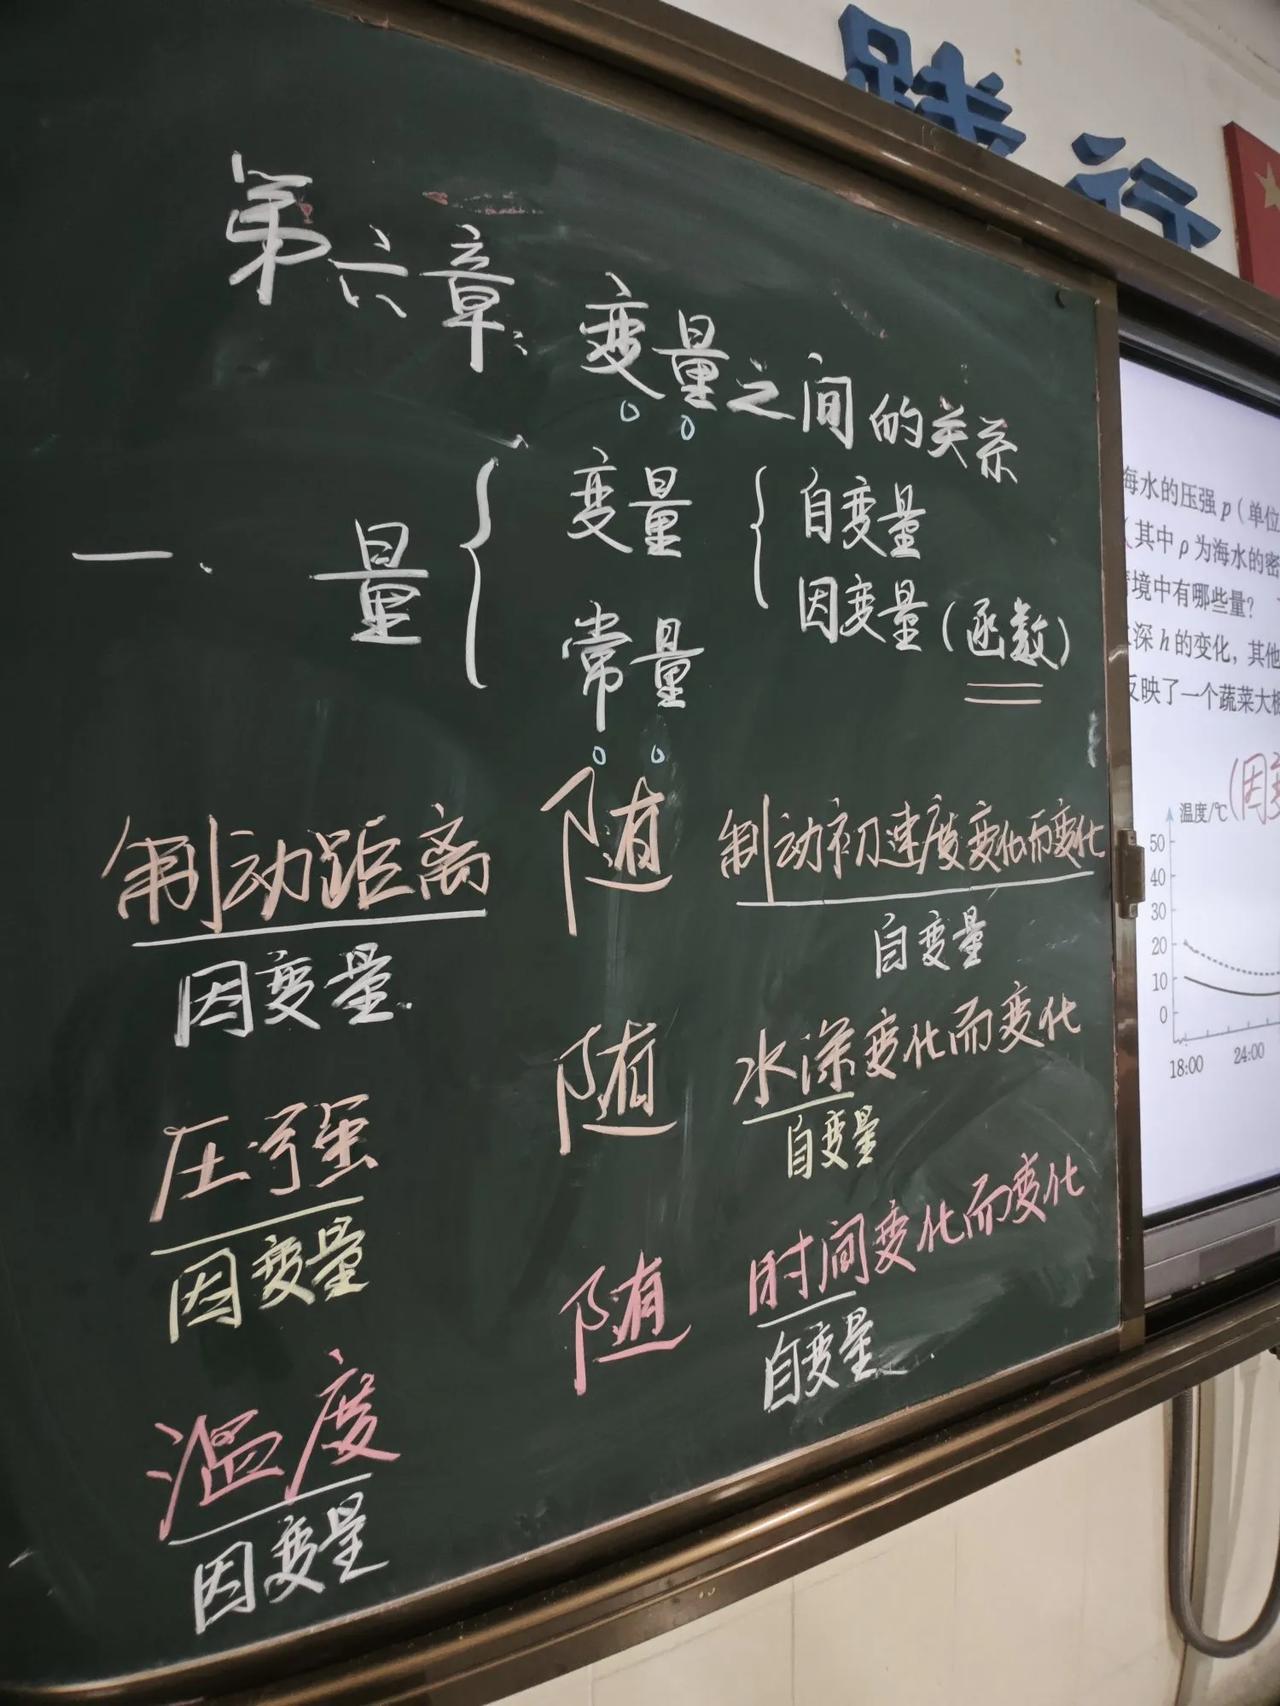 践行
第六章：变量之间的关系
一、量
变量
自变量
因变量（函数）
常量
制动距离 随 制动初速度变化而变化
因变量 自变量
压强 随 水深变化而变化
因变量 自变量
温度 随 时间变化而变化
因变量 自变量
海水的压强p（单位
（其中ρ为海水的密
境中有哪些量？
深h的变化，其他
反映了一个蔬菜大棚
温度/℃（因变
50
40
30
20
10
0
18:00 24:00